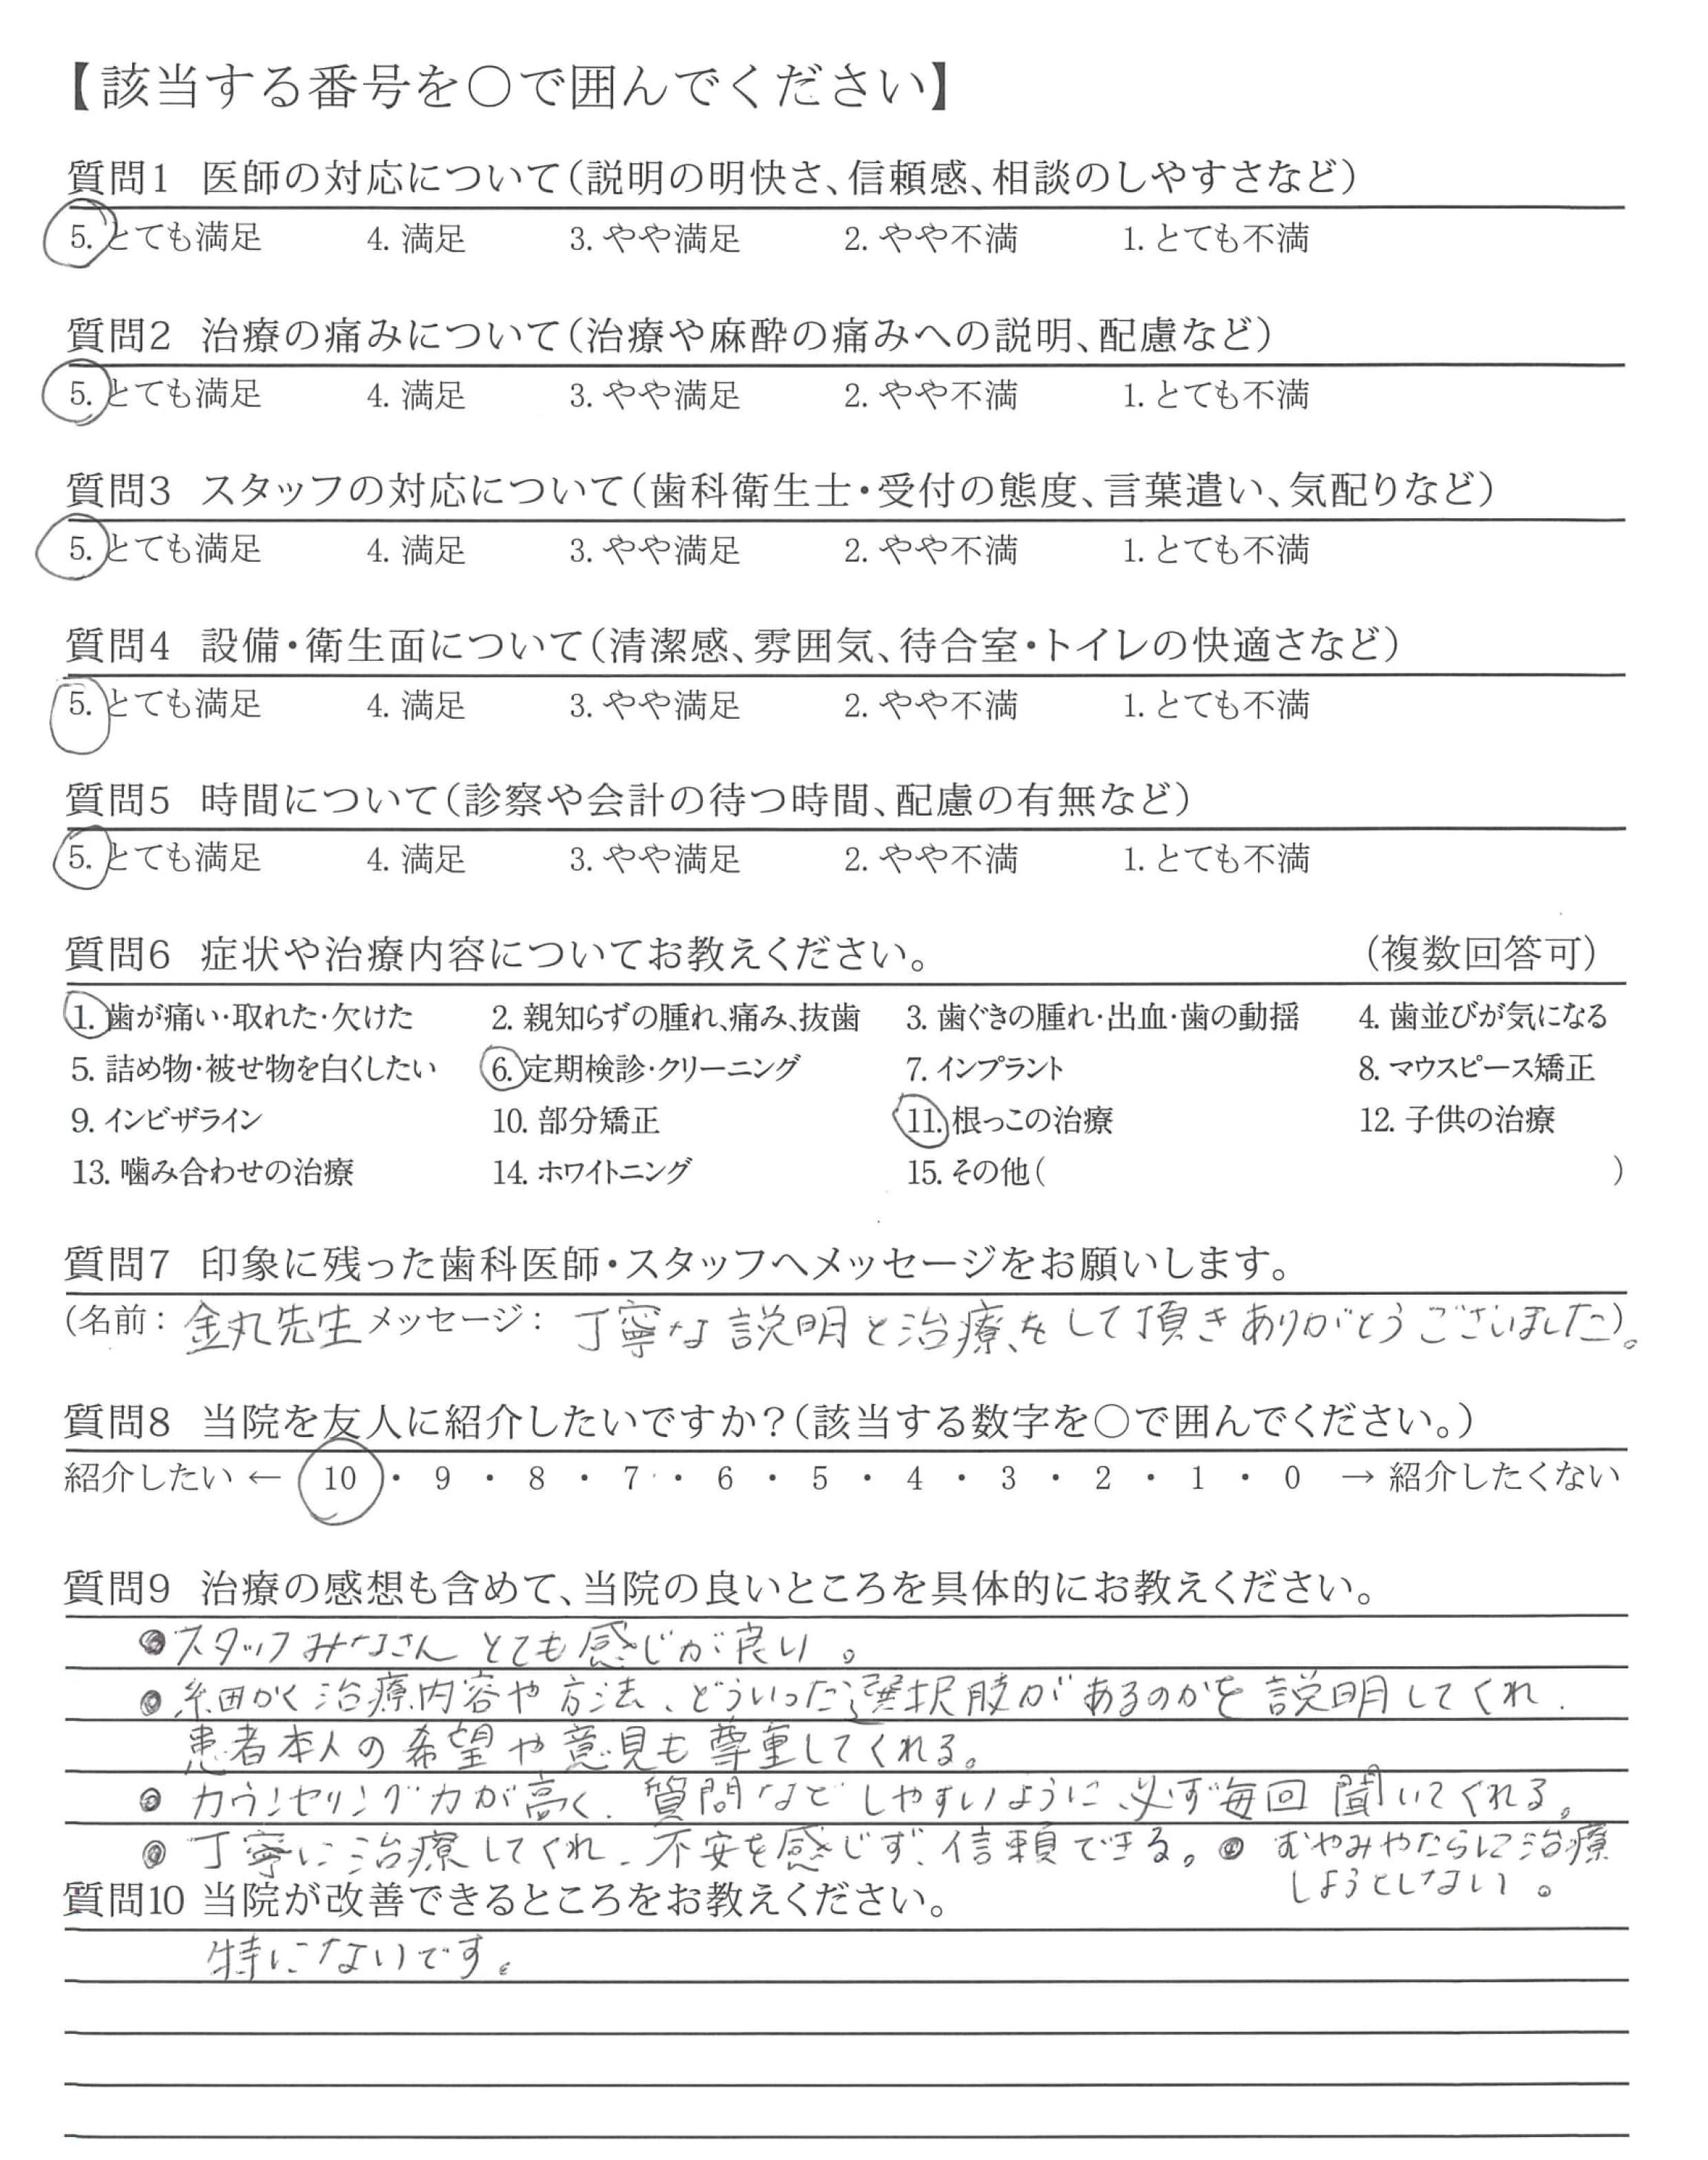 【該当する番号を○で囲んでください】
質問1 医師の対応について(説明の明快さ、信頼感、相談のしやすさなど)
5. とても満足 4. 満足 3. やや満足 2. やや不満 1. とても不満
質問2 治療の痛みについて(治療や麻酔の痛みへの説明、配慮など)
5. とても満足 4. 満足 3. やや満足 2. やや不満 1. とても不満
質問3 スタッフの対応について(歯科衛生士・受付の態度、言葉遣い、気配りなど)
5. とても満足 4. 満足 3. やや満足 2. やや不満 1. とても不満
質問4 設備・衛生面について(清潔感、雰囲気、待合室・トイレの快適さなど)
5. とても満足 4. 満足 3. やや満足 2. やや不満 1. とても不満
質問5 時間について(診察や会計の待つ時間、配慮の有無など)
5. とても満足 4. 満足 3. やや満足 2. やや不満 1. とても不満
質問6 症状や治療内容についてお教えください。 (複数回答可)
1. 歯が痛い・取れた・欠けた 2. 親知らずの腫れ、痛み、抜歯 3. 歯ぐきの腫れ・出血・歯の動揺 4. 歯並びが気になる
5. 詰め物・被せ物を白くしたい 6. 定期検診・クリーニング 7. インプラント 8. マウスピース矯正
9. インビザライン 10. 部分矯正 11. 根っこの治療 12. 子供の治療
13. 噛み合わせの治療 14. ホワイトニング 15. その他( )
質問7 印象に残った歯科医師・スタッフへメッセージをお願いします。
(名前: 金丸先生 メッセージ: 丁寧な説明と治療をして頂きありがとうございました)。
質問8 当院を友人に紹介したいですか?(該当する数字を○で囲んでください。)
紹介したい ← 10 ・ 9 ・ 8 ・ 7 ・ 6 ・ 5 ・ 4 ・ 3 ・ 2 ・ 1 ・ 0 → 紹介したくない
質問9 治療の感想も含めて、当院の良いところを具体的にお教えください。
●スタッフみなさん とても感じが良い。
●細かく治療内容や方法、どういった選択肢があるのかを説明してくれ、
患者本人の希望や意見も尊重してくれる。
●カウンセリング力が高く、質問などしやすいように必ず毎回聞いてくれる。
●丁寧に治療してくれ、不安を感じず、信頼できる。●むやみやたらに治療
しようとしない。
質問10 当院が改善できるところをお教えください。
特にないです。